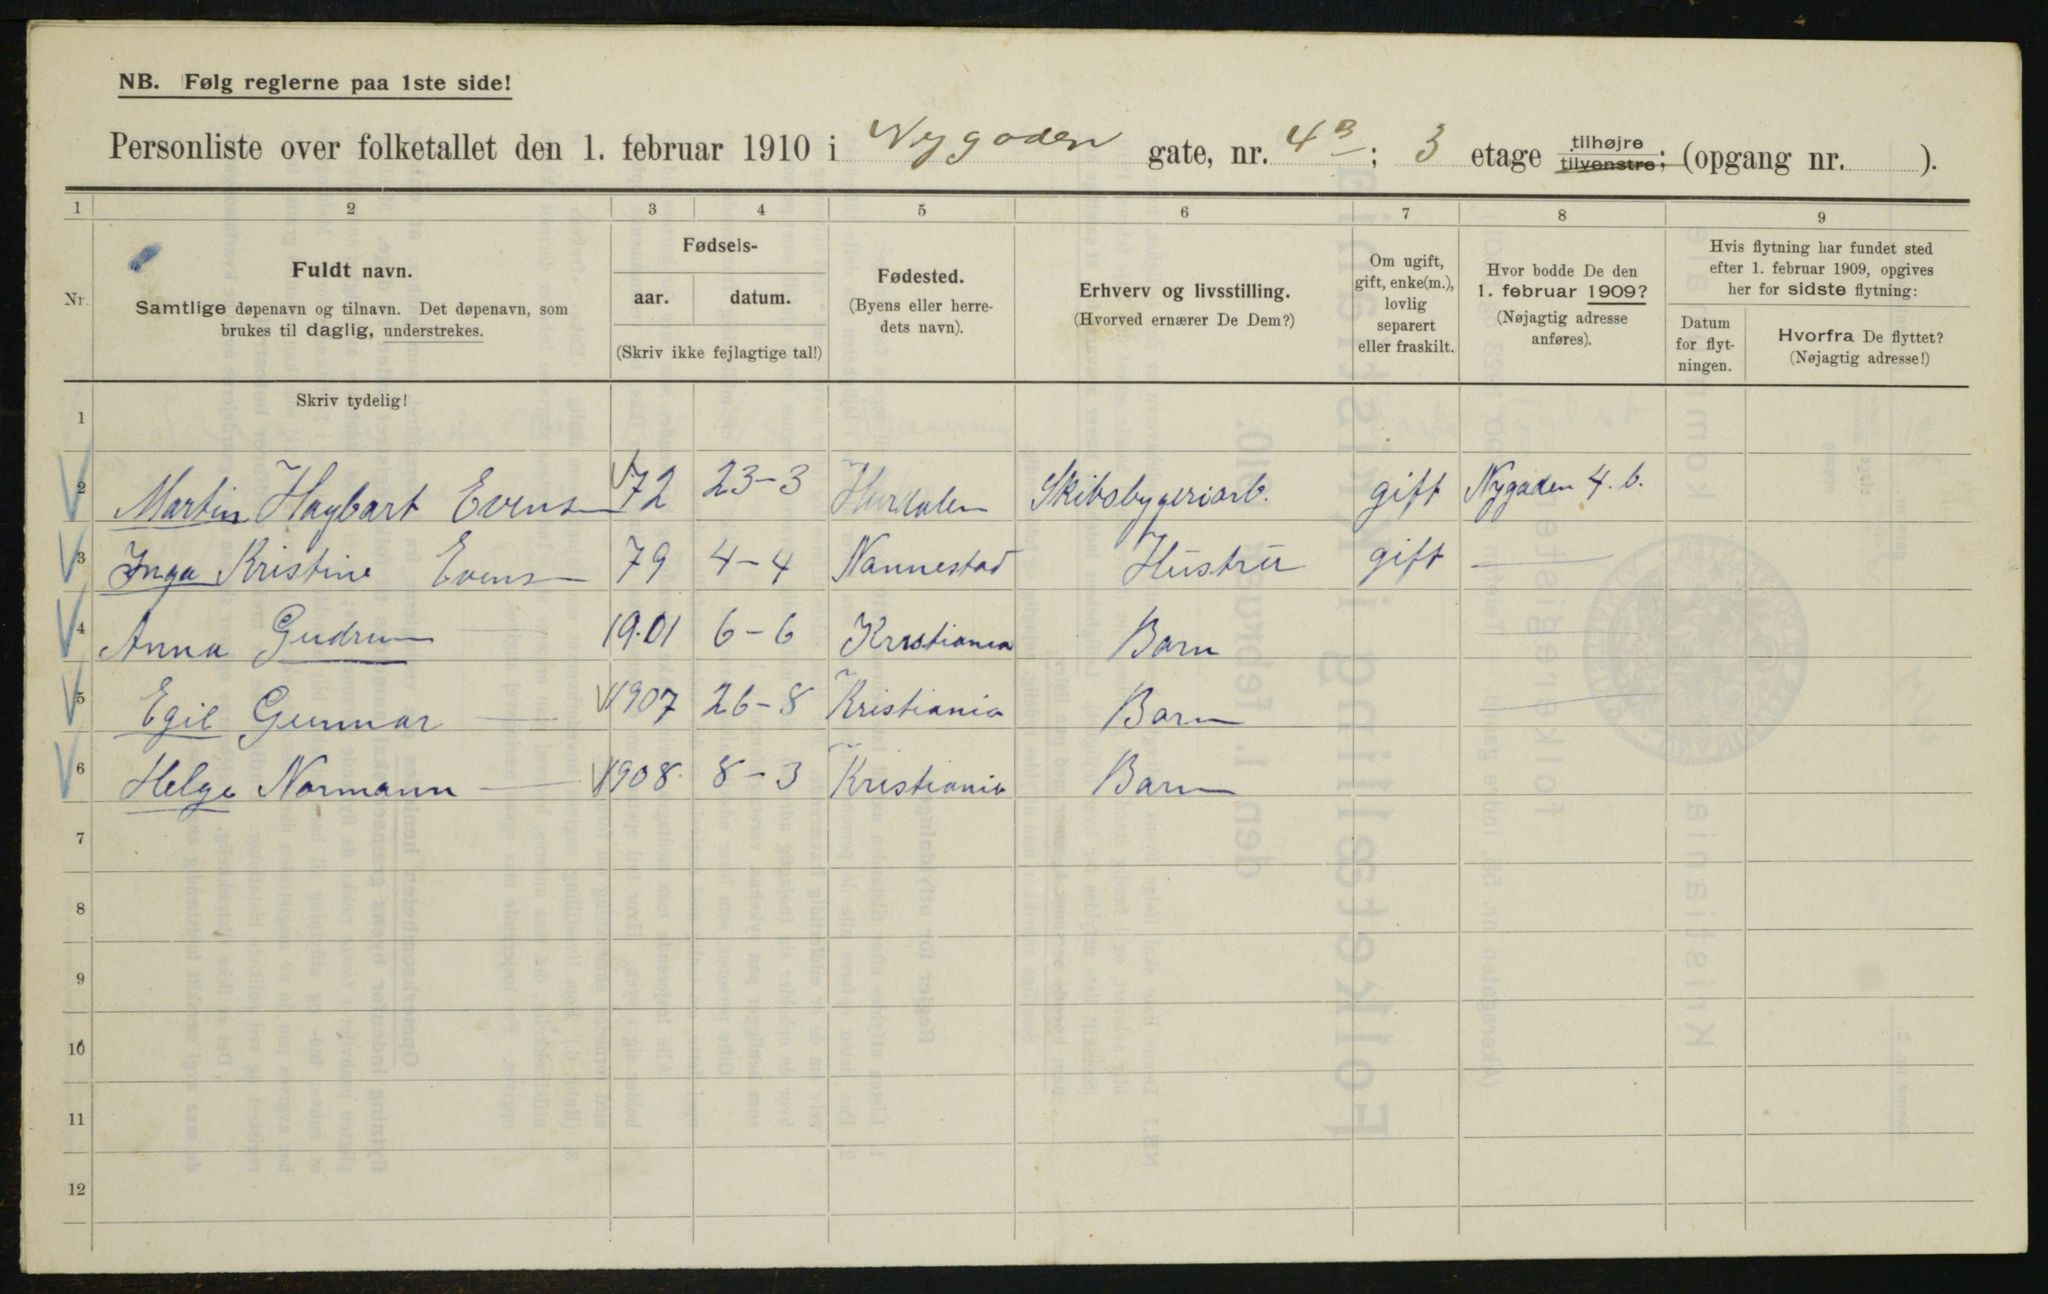 NB. Følg reglerne paa 1ste side!
Personliste over folketallet den 1. februar 1910 i Nygaden gate, nr. 4B; 3 etage tilhøjre tilvenstre; (opgang nr. ).
1 2 3 4 5 6 7 8 9
Nr.
Fuldt navn.
Samtlige døpenavn og tilnavn. Det døpenavn, som
brukes til daglig, understrekes.
Fødsels-
aar. datum.
(Skriv ikke fejlagtige tal!)
Fødested.
(Byens eller herre-
dets navn).
Erhverv og livsstilling.
(Hvorved ernærer De Dem?)
Om ugift,
gift, enke(m.),
lovlig
separert
eller fraskilt.
Hvor bodde De den
1. februar 1909?
(Nøjagtig adresse
anføres).
Hvis flytning har fundet sted
efter 1. februar 1909, opgives
her for sidste flytning:
Datum
for flyt-
ningen.
Hvorfra De flyttet?
(Nøjagtig adresse!)
Skriv tydelig!
1
2 Martin Hagbart Evens 72 23-3 Hurdalen Skibsbyggeriarb. gift Nygaden 4. b.
3 Inga Kristine Evens 79 4-4 Nannestad Hustru gift —
4 Anna Gudrun — 1901 6-6 Kristiania Barn —
5 Egil Gunnar — 1907 26-8 Kristiania Barn —
6 Helge Normann — 1908 8-3 Kristiania Barn
7
8
9
10
11
12